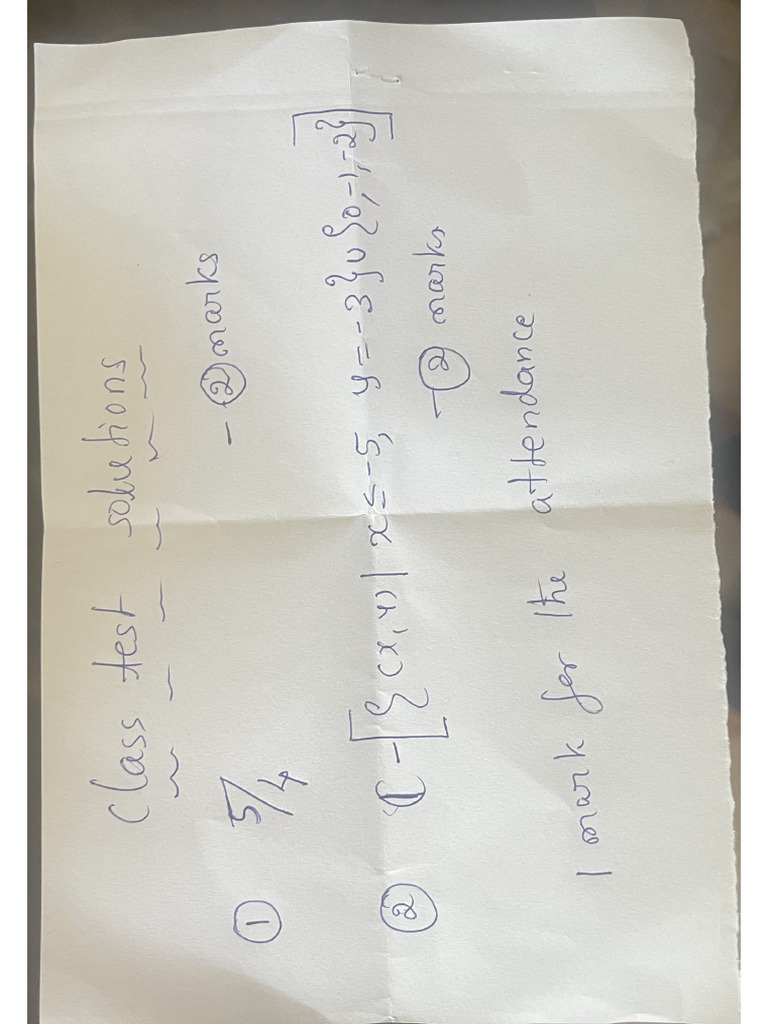 Class test solutions
① 5/4 - ② marks
② ℂ - [{(x, y) | x ≤ -5, y = -3} ∪ {0, -1, -2}]
- ② marks
1 mark for the attendance.